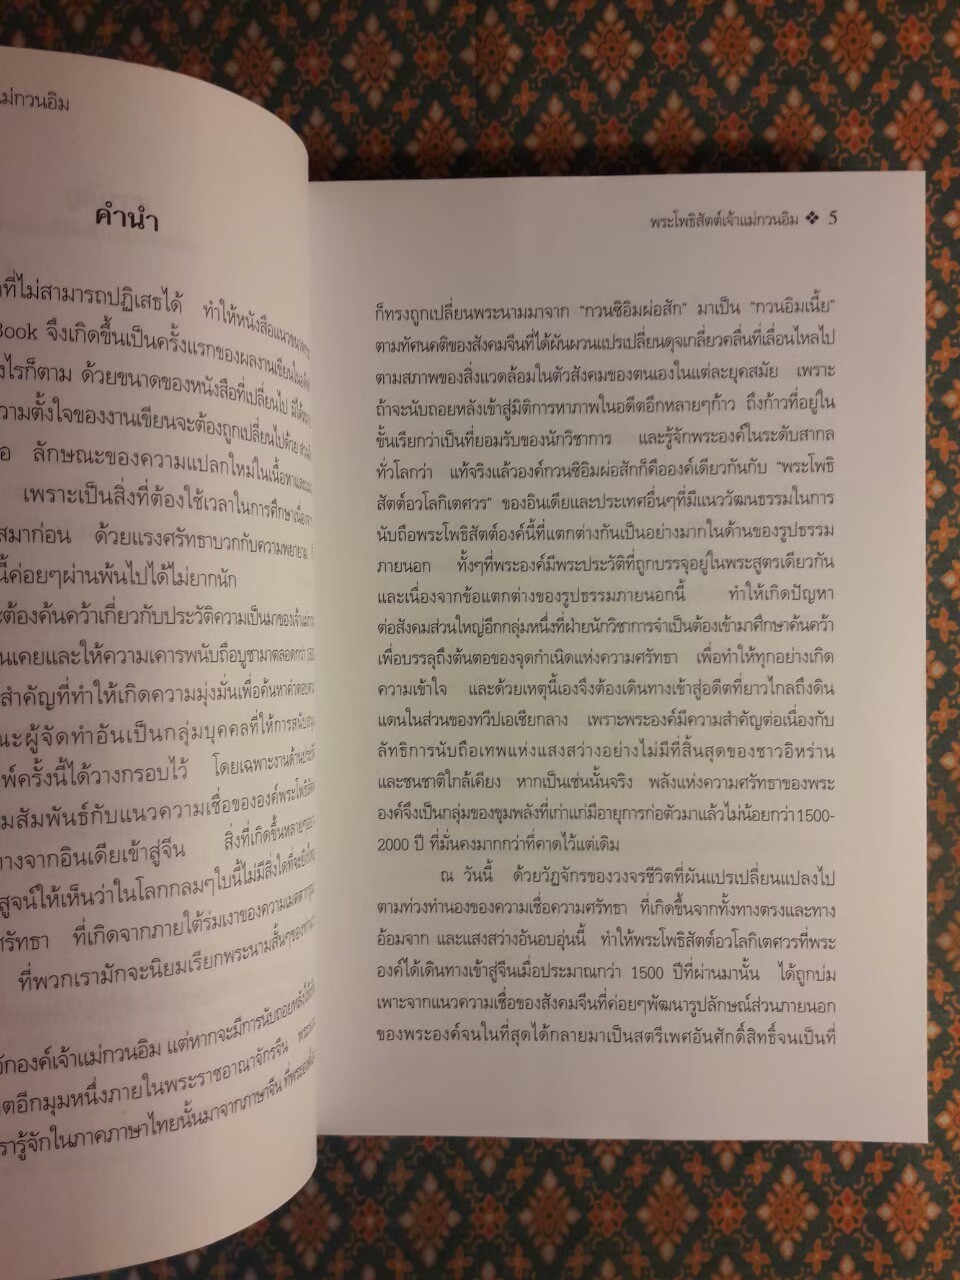 แม่กวนอิม
คำนำ
ที่ไม่สามารถปฏิเสธได้ ทำให้หนังสือแนวขนาด
Book จึงเกิดขึ้นเป็นครั้งแรกของผลงานเขียนใน
ไรก็ตาม ด้วยขนาดของหนังสือที่เปลี่ยนไป มิได้
ความตั้งใจของงานเขียนจะต้องถูกเปลี่ยนไปด้วย
ลักษณะของความแปลกใหม่ในเนื้อหาและ
เพราะเป็นสิ่งที่ต้องใช้เวลาในการศึกษา
มาก่อน ด้วยแรงศรัทธาบวกกับความพยายาม
นี้ค่อยๆผ่านพ้นไปได้ไม่ยากนัก
ต้องค้นคว้าเกี่ยวกับประวัติความเป็นมาของ
เคยและให้ความเคารพนับถือบูชามาตลอดกว่า
สำคัญที่ทำให้เกิดความมุ่งมั่นเพื่อค้นหาคำตอบ
ผู้จัดทำอันเป็นกลุ่มบุคคลที่ให้การสนับสนุน
ครั้งนี้ได้วางกรอบไว้ โดยเฉพาะงานด้าน
สัมพันธ์กับแนวความเชื่อขององค์พระโพธิสัตต์
ทางจากอินเดียเข้าสู่จีน สิ่งที่เกิดขึ้น
ให้เห็นว่าในโลกกลมๆใบนี้ไม่มีสิ่งใดที่จะ
ศรัทธา ที่เกิดจากภายใต้ร่มเงาของความเมตตา
ที่พวกเรามักจะนิยมเรียกพระนามสั้นๆของ
องค์เจ้าแม่กวนอิม แต่หากจะมีการนับถอยหลัง
อีกมุมหนึ่งภายในพระราชอาณาจักรจีน
รู้จักในภาคภาษาไทยนั้นมาจากภาษาจีน
พระโพธิสัตต์เจ้าแม่กวนอิม ❖ 5
ก็ทรงถูกเปลี่ยนพระนามมาจาก “กวนซิอิมผ่อสัก” มาเป็น “กวนอิมเนี้ย”
ตามทัศนคติของสังคมจีนที่ได้ผันผวนแปรเปลี่ยนดุจเกลี่ยวคลื่นที่เลื่อนไหลไป
ตามสภาพของสิ่งแวดล้อมในตัวสังคมของตนเองในแต่ละยุคสมัย เพราะ
ถ้าจะนับถอยหลังเข้าสู่มิติการหาภาพในอดีตอีกหลายๆก้าว ถึงก้าวที่อยู่ใน
ขั้นเรียกว่าเป็นที่ยอมรับของนักวิชาการ และรู้จักพระองค์ในระดับสากล
ทั่วโลกว่า แท้จริงแล้วองค์กวนซิอิมผ่อสักก็คือองค์เดียวกันกับ “พระโพธิ
สัตต์อวโลกิเตศวร” ของอินเดียและประเทศอื่นๆที่มีแนววัฒนธรรมในการ
นับถือพระโพธิสัตต์องค์นี้ที่แตกต่างกันเป็นอย่างมากในด้านของรูปธรรม
ภายนอก ทั้งๆที่พระองค์มีพระประวัติที่ถูกบรรจุอยู่ในพระสูตรเดียวกัน
และเนื่องจากข้อแตกต่างของรูปธรรมภายนอกนี้ ทำให้เกิดปัญหา
ต่อสังคมส่วนใหญ่อีกกลุ่มหนึ่งที่ฝ่ายนักวิชาการจำเป็นต้องเข้ามาศึกษาค้นคว้า
เพื่อบรรลุถึงต้นตอของจุดกำเนิดแห่งความศรัทธา เพื่อทำให้ทุกอย่างเกิด
ความเข้าใจ และด้วยเหตุนี้เองจึงต้องเดินทางเข้าสู่อดีตที่ยาวไกลถึงดิน
แดนในส่วนของทวีปเอเชียกลาง เพราะพระองค์มีความสำคัญต่อเนื่องกับ
ลัทธิการนับถือเทพแห่งแสงสว่างอย่างไม่มีที่สิ้นสุดของชาวอิหร่าน
และชนชาติใกล้เคียง หากเป็นเช่นนั้นจริง พลังแห่งความศรัทธาของพระ
องค์จึงเป็นกลุ่มของขุมพลังที่เก่าแก่มีอายุการก่อตัวมาแล้วไม่น้อยกว่า 1500-
2000 ปี ที่มั่นคงมากกว่าที่คาดไว้แต่เดิม
ณ วันนี้ ด้วยวัฏจักรของวงจรชีวิตที่ผันแปรเปลี่ยนแปลงไป
ตามท่วงทำนองของความเชื่อความศรัทธา ที่เกิดขึ้นจากทั้งทางตรงและทาง
อ้อมจาก และแสงสว่างอันอบอุ่นนี้ ทำให้พระโพธิสัตต์อวโลกิเตศวรที่พระ
องค์ได้เดินทางเข้าสู่จีนเมื่อประมาณกว่า 1500 ปีที่ผ่านมานั้น ได้ถูกบ่ม
เพาะจากแนวความเชื่อของสังคมจีนที่ค่อยๆพัฒนารูปลักษณ์ส่วนภายนอก
ของพระองค์จนในที่สุดได้กลายมาเป็นสตรีเพศอันศักดิ์สิทธิ์จนเป็นที่